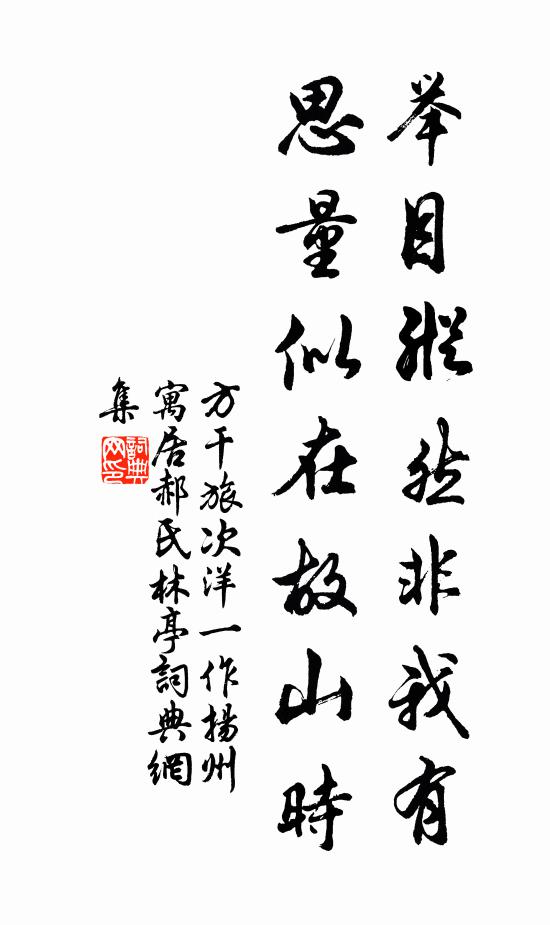 举目纵然非我有
思量似在故山時
方干旅次洋一作揚州
寓居郝氏林亭詞典網
集
詞典网印